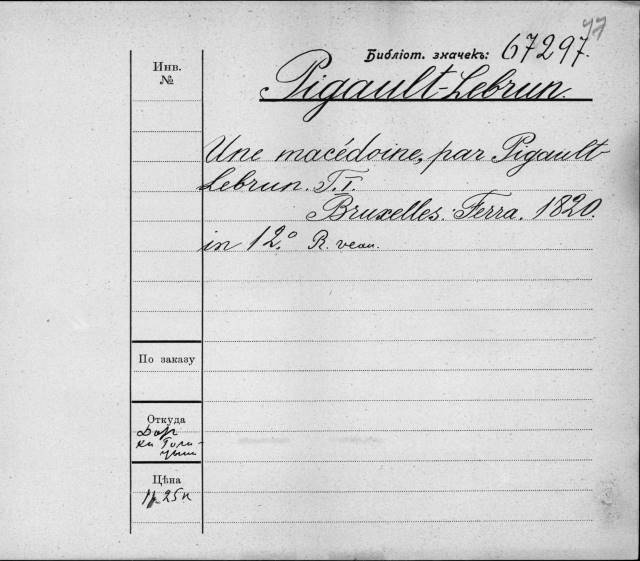 77
Библіот. значекъ: 67297.
Инв.
№
Pigault-Lebrun.
Une macédoine, par Pigault-
Lebrun. T. I.
Bruxelles. Ferra. 1820.
in 12.° R. veau.
По заказу
Откуда
Цѣна
25 к